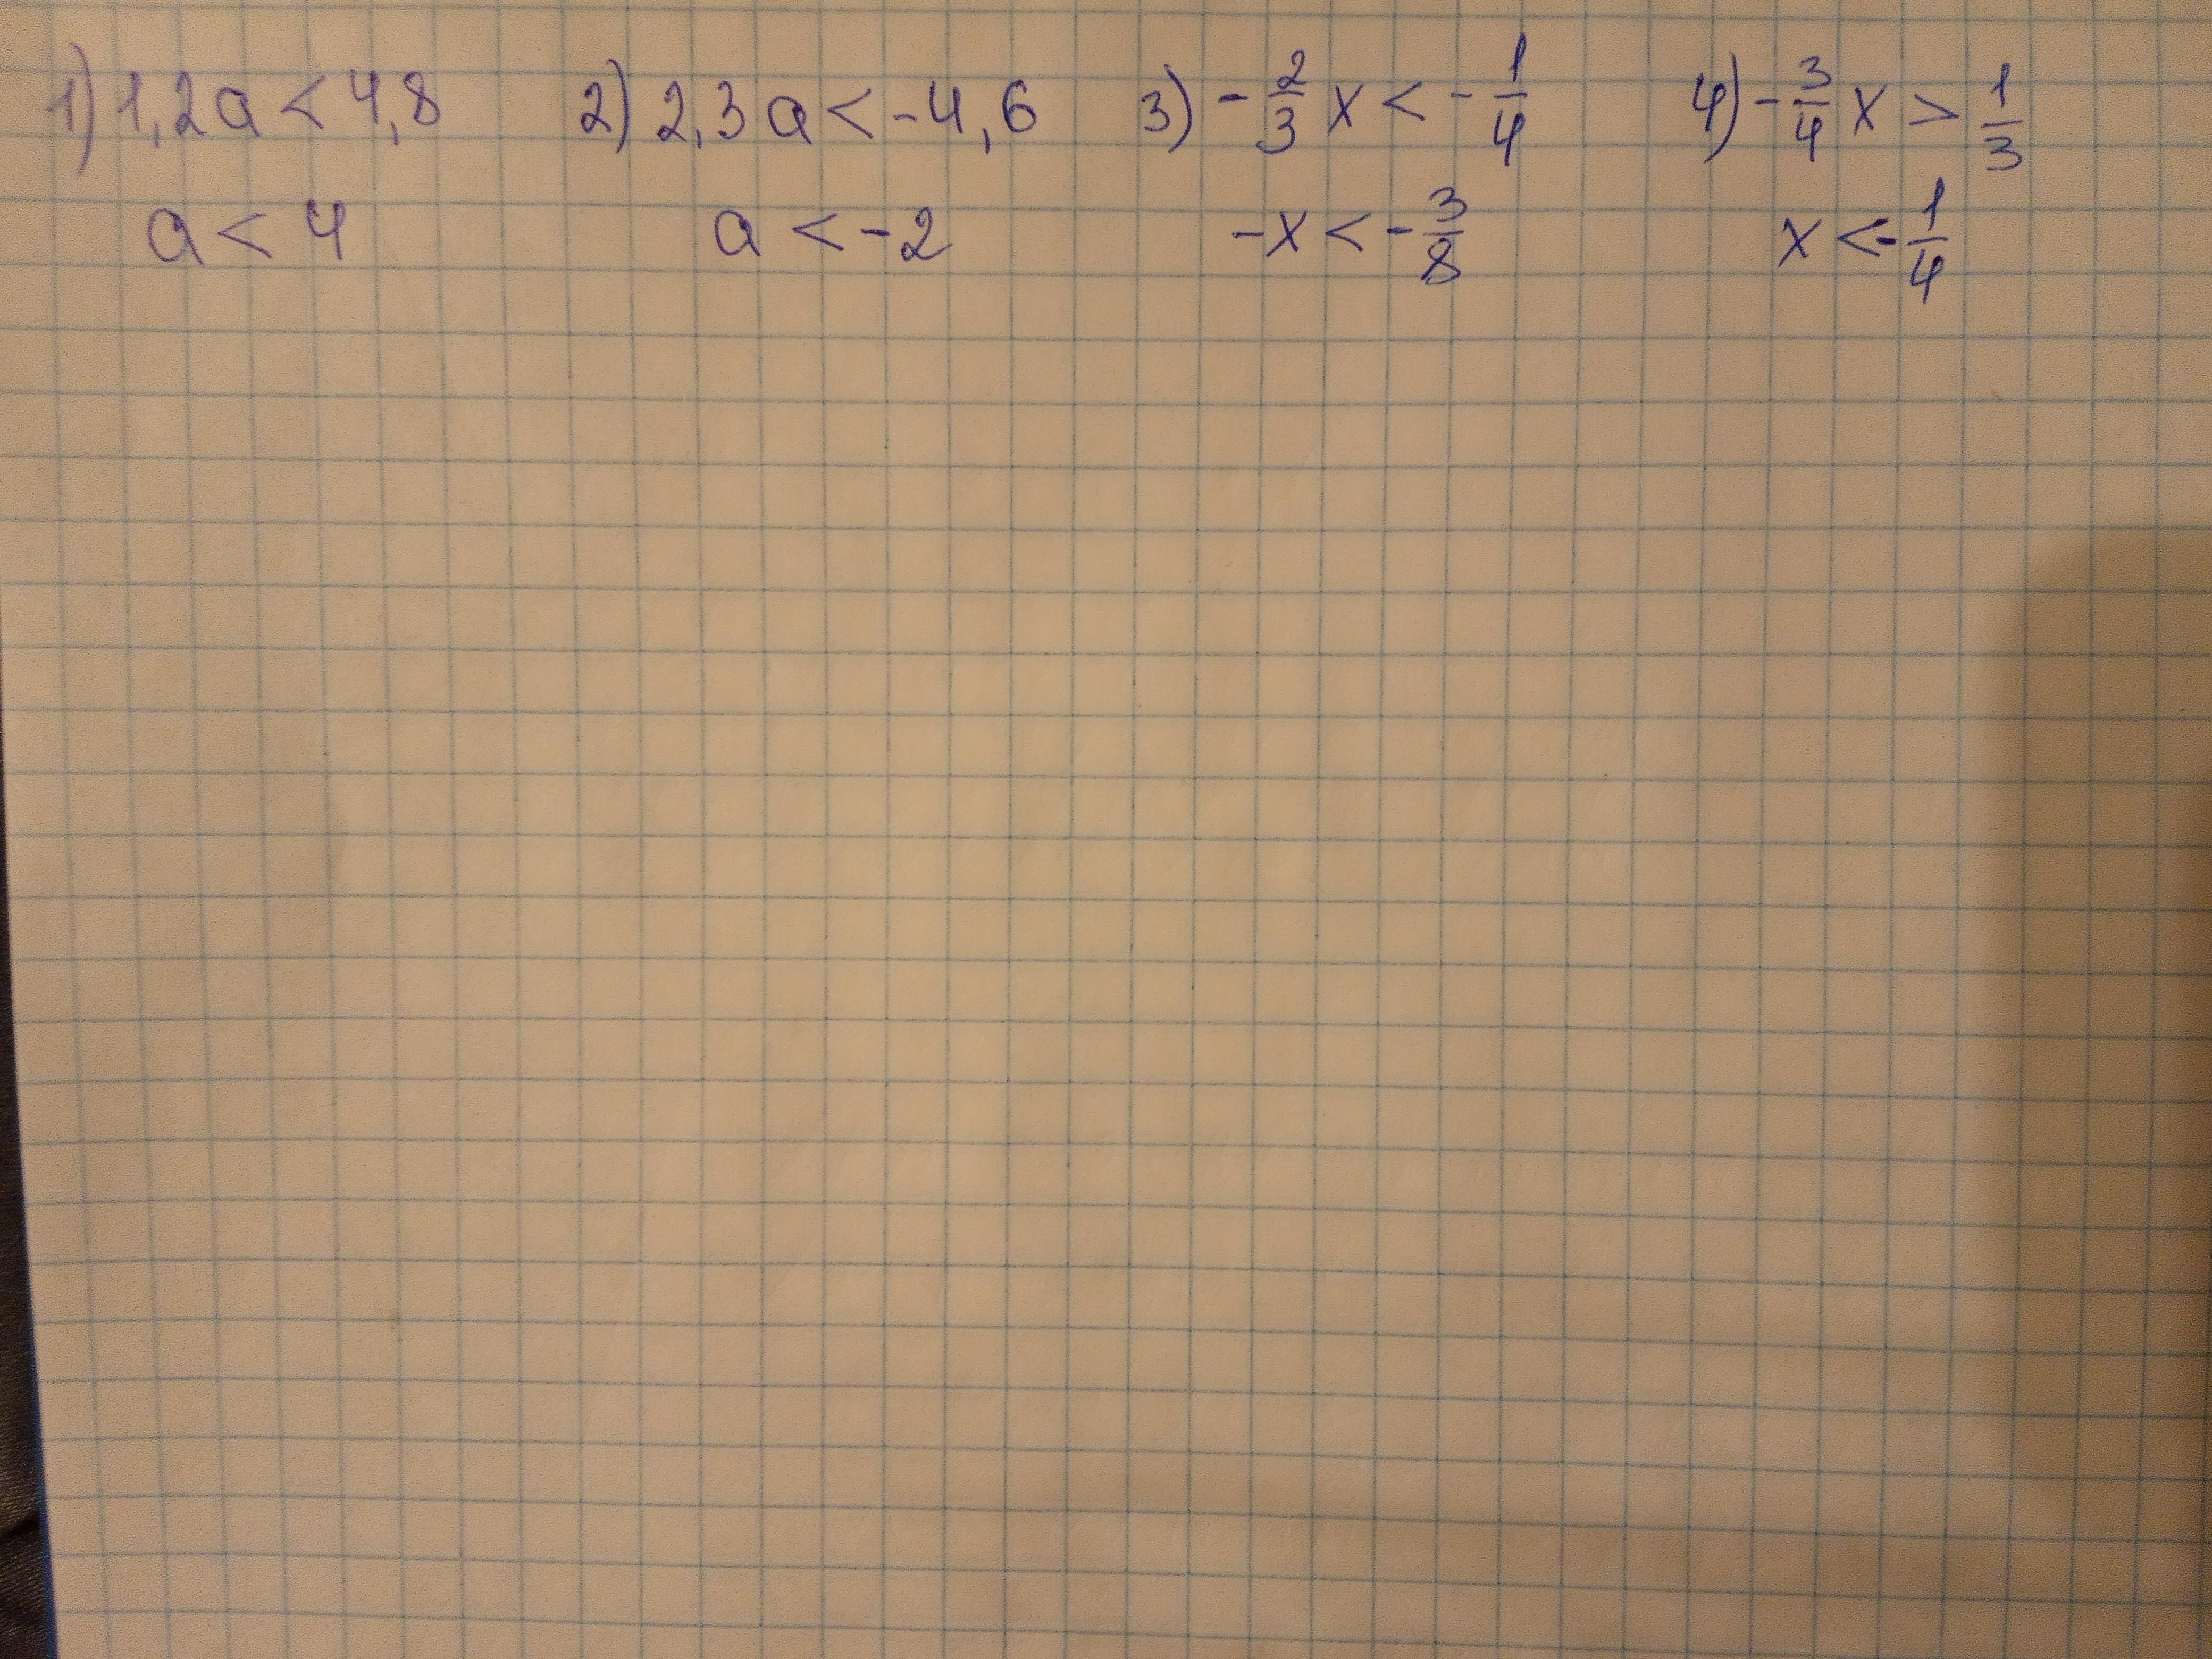 1) 1,2a < 4,8 2) 2,3a < -4,6 3) -2/3 x < -1/4 4) -3/4 x > 1/3
a < 4 a < -2 -x < -3/8 x < -1/4